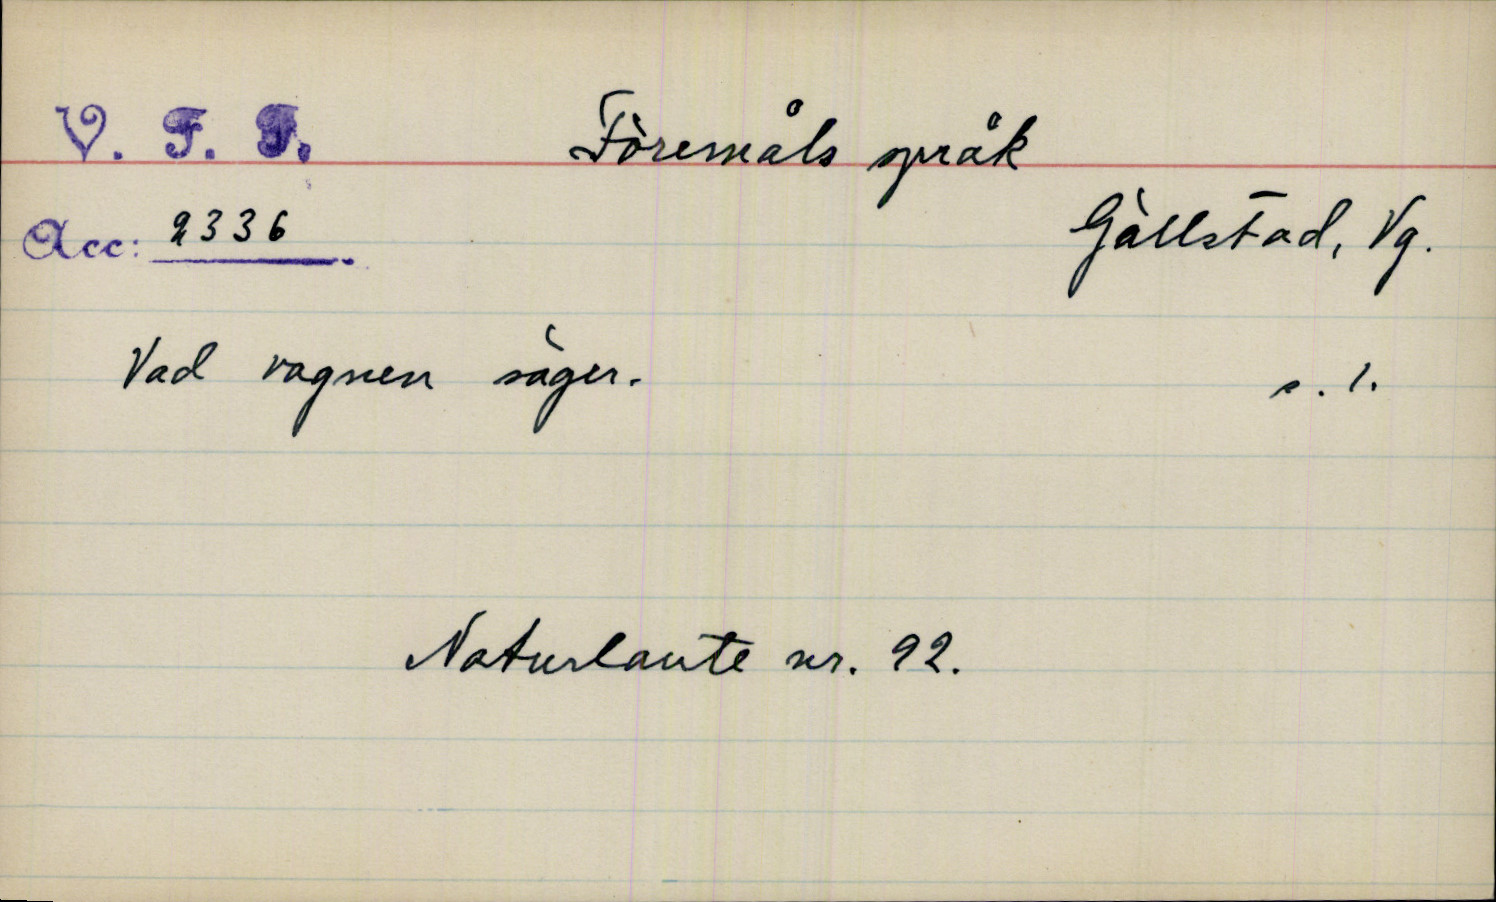 V. F. F. Föremåls språk
Acc: 2336 Gällstad, Vg.
Vad vagnen säger. s. 1.
Naturlaute nr. 92.